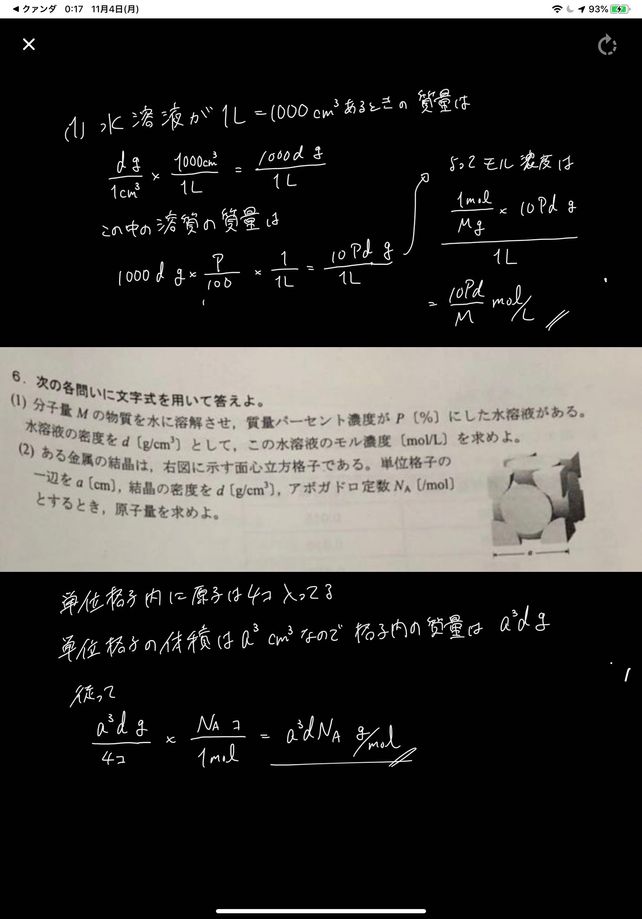 ◀ クァンダ 0:17 11月4日(月) 93%
(1) 水溶液が1L=1000cm³あるときの質量は
dg/1cm³ × 1000cm³/1L = 1000d g/1L
この中の溶質の質量は
1000d g× P/100 × 1/1L = 10Pd g/1L
よってモル濃度は
1mol/Mg × 10Pd g
1L
= 10Pd/M mol/L
6. 次の各問いに文字式を用いて答えよ。
(1) 分子量Mの物質を水に溶解させ,質量パーセント濃度がP〔%〕にした水溶液がある。
水溶液の密度をd〔g/cm³〕として,この水溶液のモル濃度〔mol/L〕を求めよ。
(2) ある金属の結晶は,右図に示す面心立方格子である。単位格子の
一辺をa〔cm〕,結晶の密度をd〔g/cm³〕,アボガドロ定数NA〔/mol〕
とするとき,原子量を求めよ。
a
単位格子内に原子は4コ入ってる
単位格子の体積はa³cm³なので格子内の質量はa³d g
従って
a³d g/4コ × NAコ/1mol = a³dNA g/mol